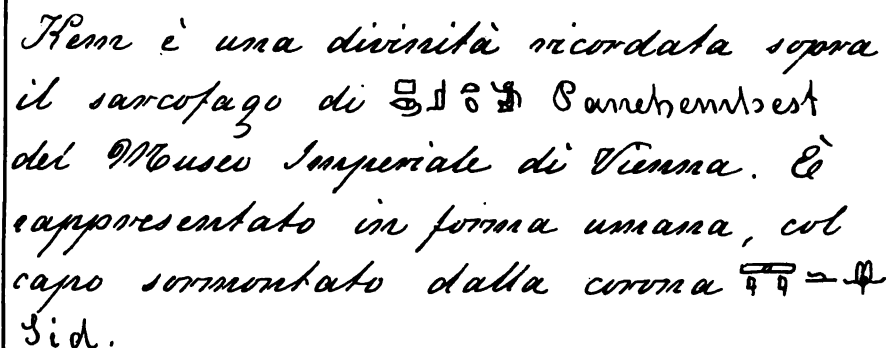 Kem è una divinità ricordata sopra
il sarcofago di Panehemisest
del Museo Imperiale di Vienna. È
rappresentato in forma umana, col
capo sormontato dalla corona
Sid.